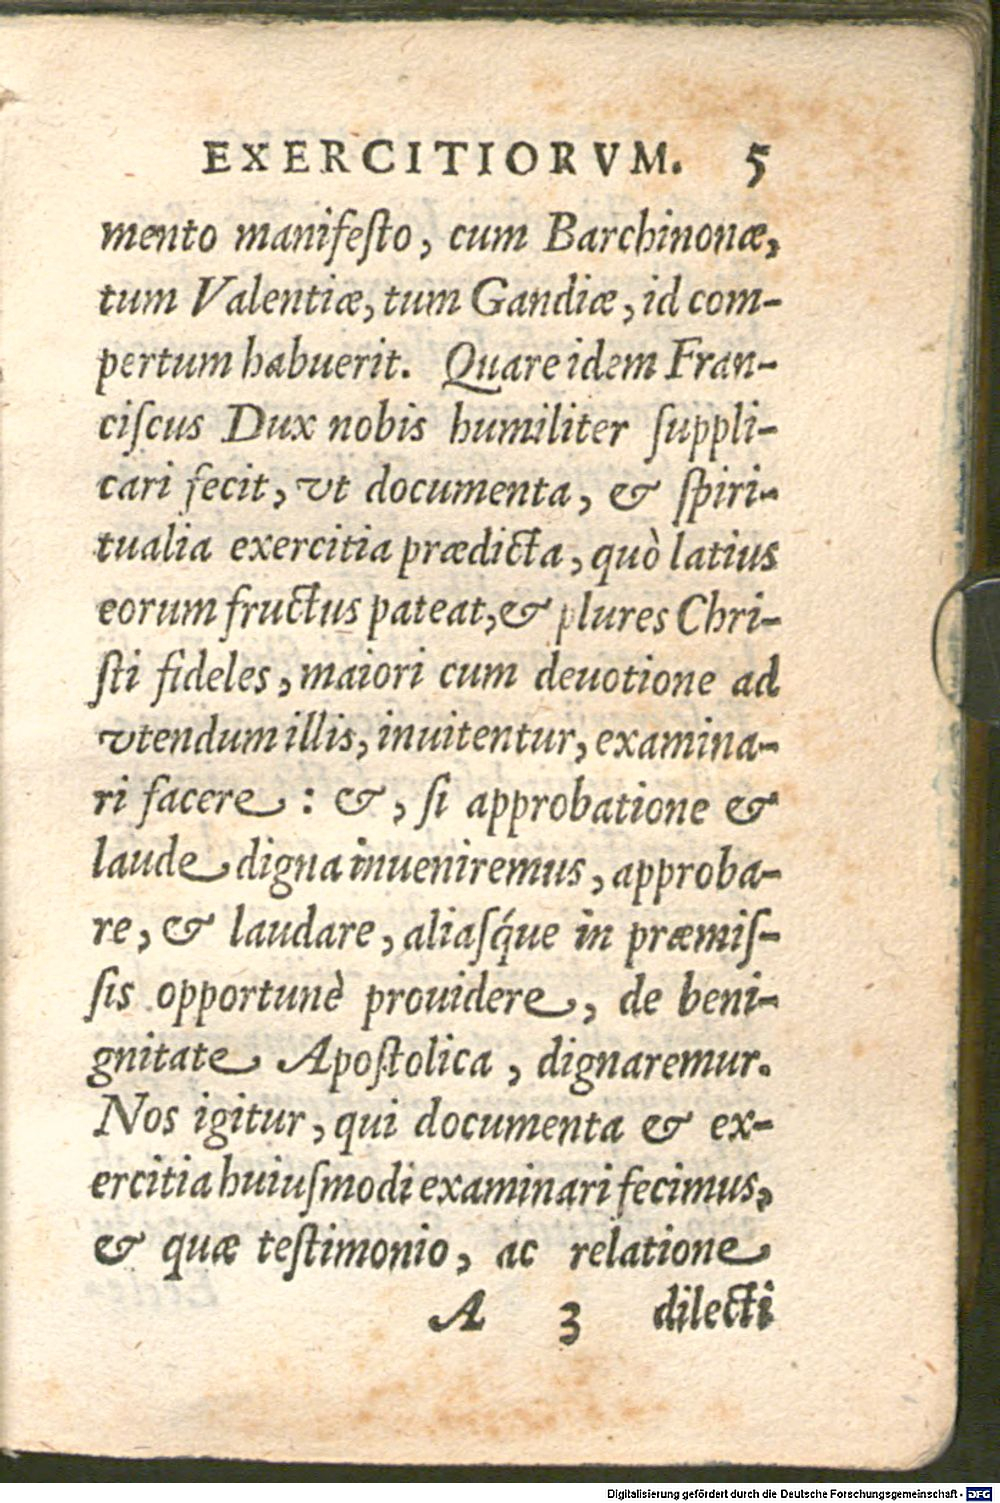 EXERCITIORVM. 5
mento manifeſto, cum Barchinonæ,
tum Valentiæ, tum Gandiæ, id com-
pertum habuerit. Quare idem Fran-
ciſcus Dux nobis humiliter ſuppli-
cari fecit, vt documenta, & ſpiri-
tualia exercitia prædicta, quò latius
eorum fructus pateat, & plures Chri-
ſti fideles, maiori cum deuotione ad
vtendum illis, inuitentur, examina-
ri facere : &, ſi approbatione &
laude digna inueniremus, approba-
re, & laudare, aliaſq́ue in præmiſ-
ſis opportunè prouidere, de beni-
gnitate Apoſtolica, dignaremur.
Nos igitur, qui documenta & ex-
ercitia huiuſmodi examinari fecimus,
& quæ teſtimonio, ac relatione
A 3 dilecti
Digitalisierung gefördert durch die Deutsche Forschungsgemeinschaft - DFG